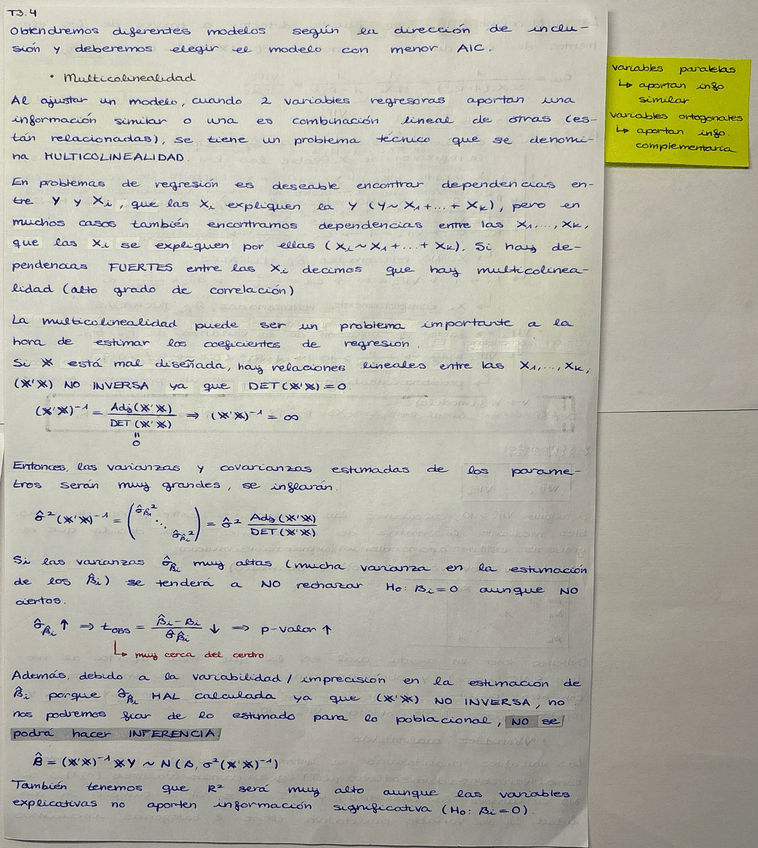 T3.4
Obtendremos diferentes modelos según la dirección de inclu-
sión y deberemos elegir el modelo con menor AIC.
• Multicolinealidad
Al ajustar un modelo, cuando 2 variables regresoras aportan una
información similar o una es combinación lineal de otras (es-
tán relacionadas), se tiene un problema técnico que se denomi-
na MULTICOLINEALIDAD
En problemas de regresión es deseable encontrar dependencias en-
tre Y y Xi, que las Xi expliquen la Y (Y~X1+...+Xk), pero en
muchos casos también encontramos dependencias entre las X1,...,Xk,
que las Xi se expliquen por ellas (Xi~X1+...+Xk). Si hay de-
pendencias FUERTES entre las Xi decimos que hay multicolinea-
lidad (alto grado de correlación)
La multicolinealidad puede ser un problema importante a la
hora de estimar los coeficientes de regresión.
Si 𝕏 está mal diseñada, hay relaciones lineales entre las X1,...,Xk,
(𝕏'𝕏) NO INVERSA ya que DET(𝕏'𝕏)=0
(𝕏'𝕏)⁻¹ = Adj(𝕏'𝕏) / DET(𝕏'𝕏) ⇒ (𝕏'𝕏)⁻¹ = ∞
"
0
Entonces, las varianzas y covarianzas estimadas de los parame-
tros serán muy grandes, se inflarán.
σ̂²(𝕏'𝕏)⁻¹ = (σ̂β̂i² ⋱ σ̂β̂i²) = σ̂² Adj(𝕏'𝕏) / DET(𝕏'𝕏)
Si las varianzas σ̂β̂i muy altas (mucha varianza en la estimación
de los β̂i) se tenderá a NO rechazar H0: βi=0 aunque NO
ciertos.
σ̂β̂i ↑ ⇒ tOBS = β̂i - βi / σ̂β̂i ↓ ⇒ p-valor ↑
↳ muy cerca del centro
Además, debido a la variabilidad/imprecisión en la estimación de
β̂i porque σ̂β̂i MAL calculada ya que (𝕏'𝕏) NO INVERSA, no
nos podremos fiar de lo estimado para lo poblacional, NO se
podrá hacer INFERENCIA
β̂ = (𝕏'𝕏)⁻¹ 𝕏Y ~ N(β, σ²(𝕏'𝕏)⁻¹)
También tenemos que R² será muy alto aunque las variables
explicativas no aporten información significativa (H0: βi=0).
variables paralelas
↳ aportan info
similar
variables ortogonales
↳ aportan info.
complementaria